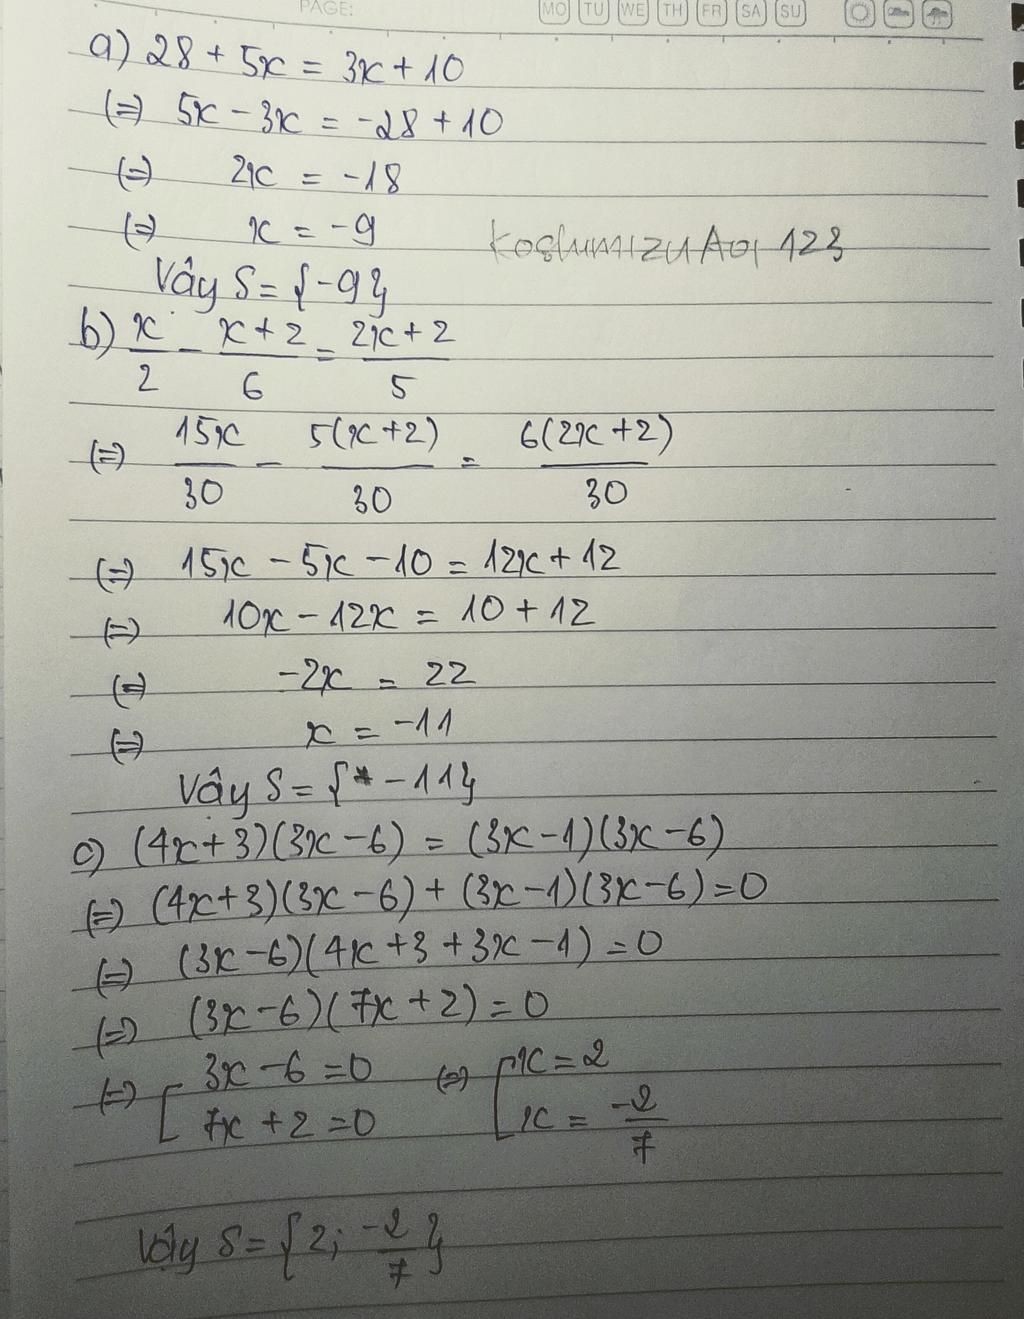 PAGE: MO TU WE TH FR SA SU
a) 28 + 5x = 3x + 10
(=) 5x - 3x = -28 + 10
(=) 2x = -18
(=) x = -9
Koshimizu Aoi 123
Vậy S = {-9}
b) x/2 - x+2/6 = 2x+2/5
(=) 15x/30 - 5(x+2)/30 = 6(2x+2)/30
(=) 15x - 5x - 10 = 12x + 12
(=) 10x - 12x = 10 + 12
(=) -2x = 22
(=) x = -11
Vậy S = {-11}
c) (4x+3)(3x-6) = (3x-1)(3x-6)
(=) (4x+3)(3x-6) + (3x-1)(3x-6) = 0
(=) (3x-6)(4x+3+3x-1) = 0
(=) (3x-6)(7x+2) = 0
(=) [ 3x-6=0 (=) [ x=2
7x+2=0 x = -2/7
Vậy S = {2; -2/7}